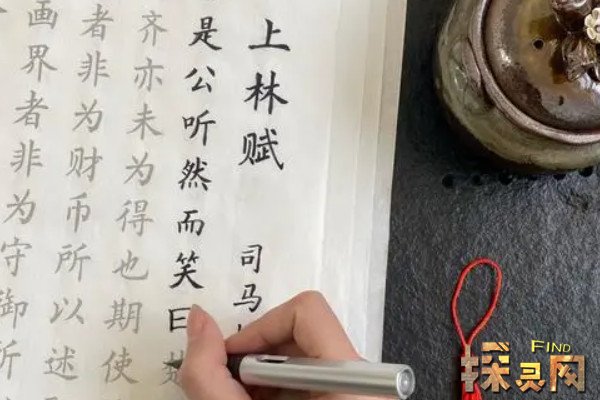 上林赋 司马
是公听然而笑曰
齐亦未为得也期使
者非为财币所以述
画界者非为守御所
FIND
探灵网